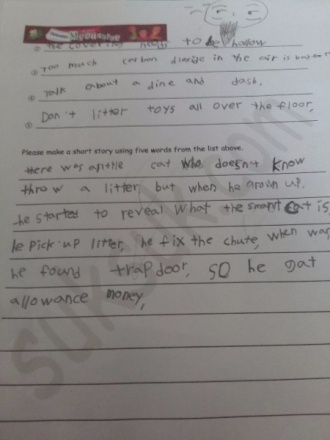 the covering to be hollow
② Too much carbon dioxide in the air is bad
③ Talk about a dine and dash.
④ Don't litter toys all over the floor,
Please make a short story using five words from the list above.
there was a little cat who doesn't know
throw a litter but when he grown up.
he started to reveal what the smart cat is
he pick up litter, he fix the chute, when was
he found trap door, so he gat
allowance money,